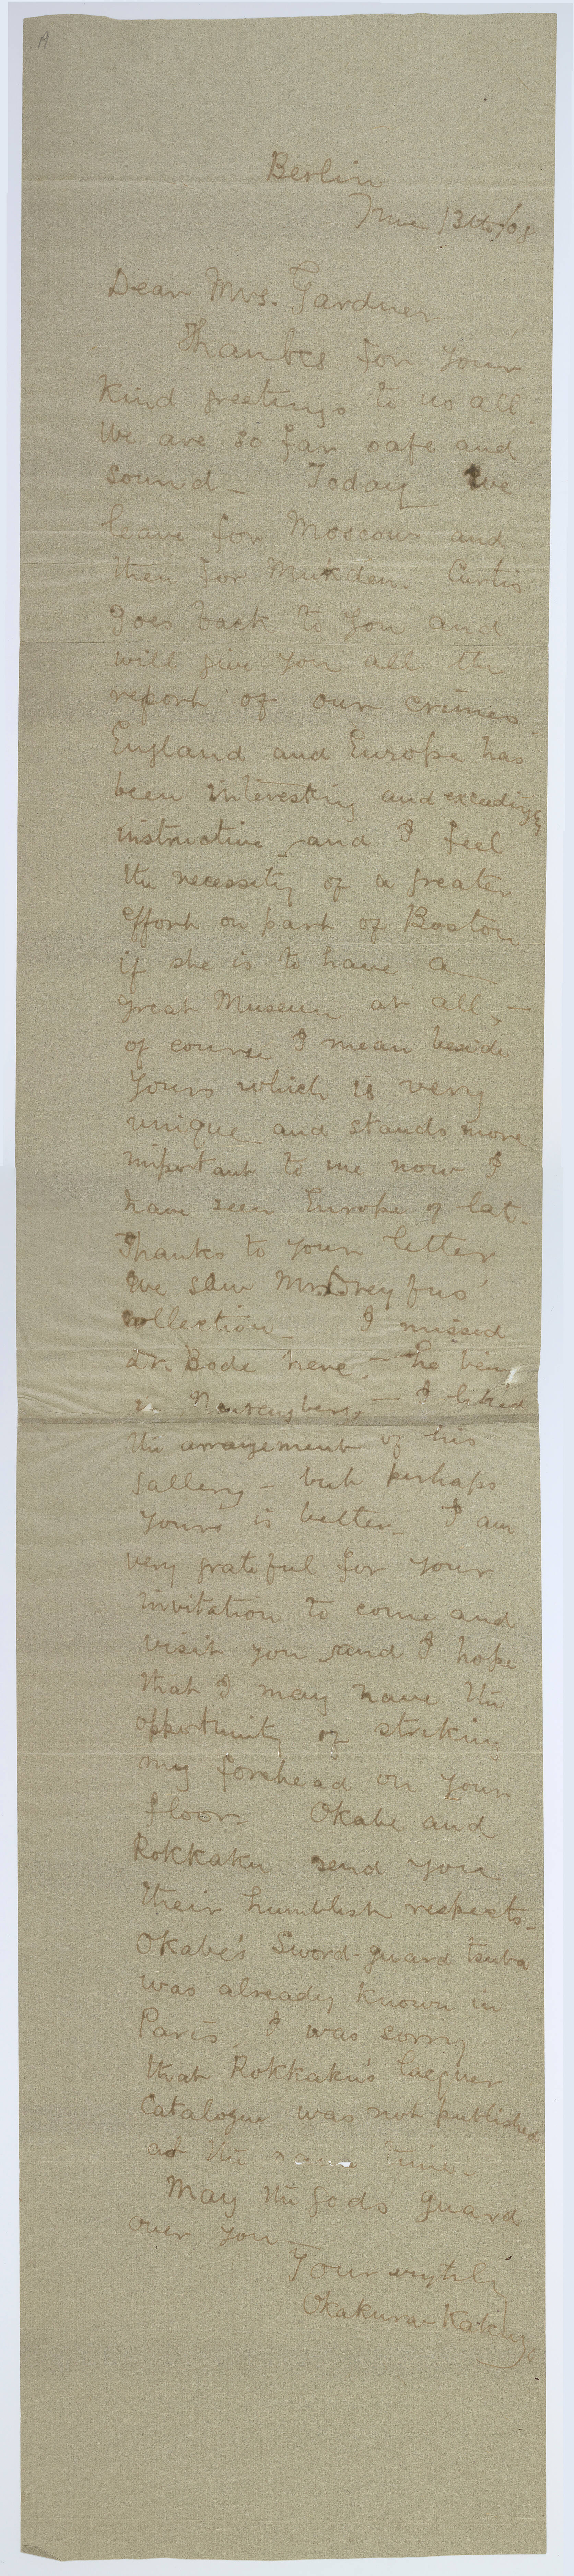 A
Berlin
June 13th/08
Dear Mrs. Gardner
Thanks for your
Kind greetings to us all.
We are so far safe and
sound — Today we
leave for Moscow and
then for Mukden. Curtis
goes back to you and
will give you all the
report of our crimes.
England and Europe has
been interesting and exceedingly
instructive and I feel
the necessity of a greater
effort on part of Boston
if she is to have a
great Museum at all, —
of course I mean beside
yours which is very
unique and stands more
important to me now I
have seen Europe of late.
Thanks to your letter
we saw Mr Dreyfus'
collection — I missed
Dr Bode here, — he being
in — I liked
the arrangement of his
gallery — but perhaps
yours is better — I am
very grateful for your
invitation to come and
visit you and I hope
that I may have the
opportunity of striking
my forehead on your
floor. Okabe and
Rokkaku send you
their humblest respects —
Okabe's Sword-guard tsuba
was already known in
Paris. I was sorry
that Rokkaku's lacquer
Catalogue was not published
at the same time.
May the gods guard
over you —
Your
Okakura Kakuzo